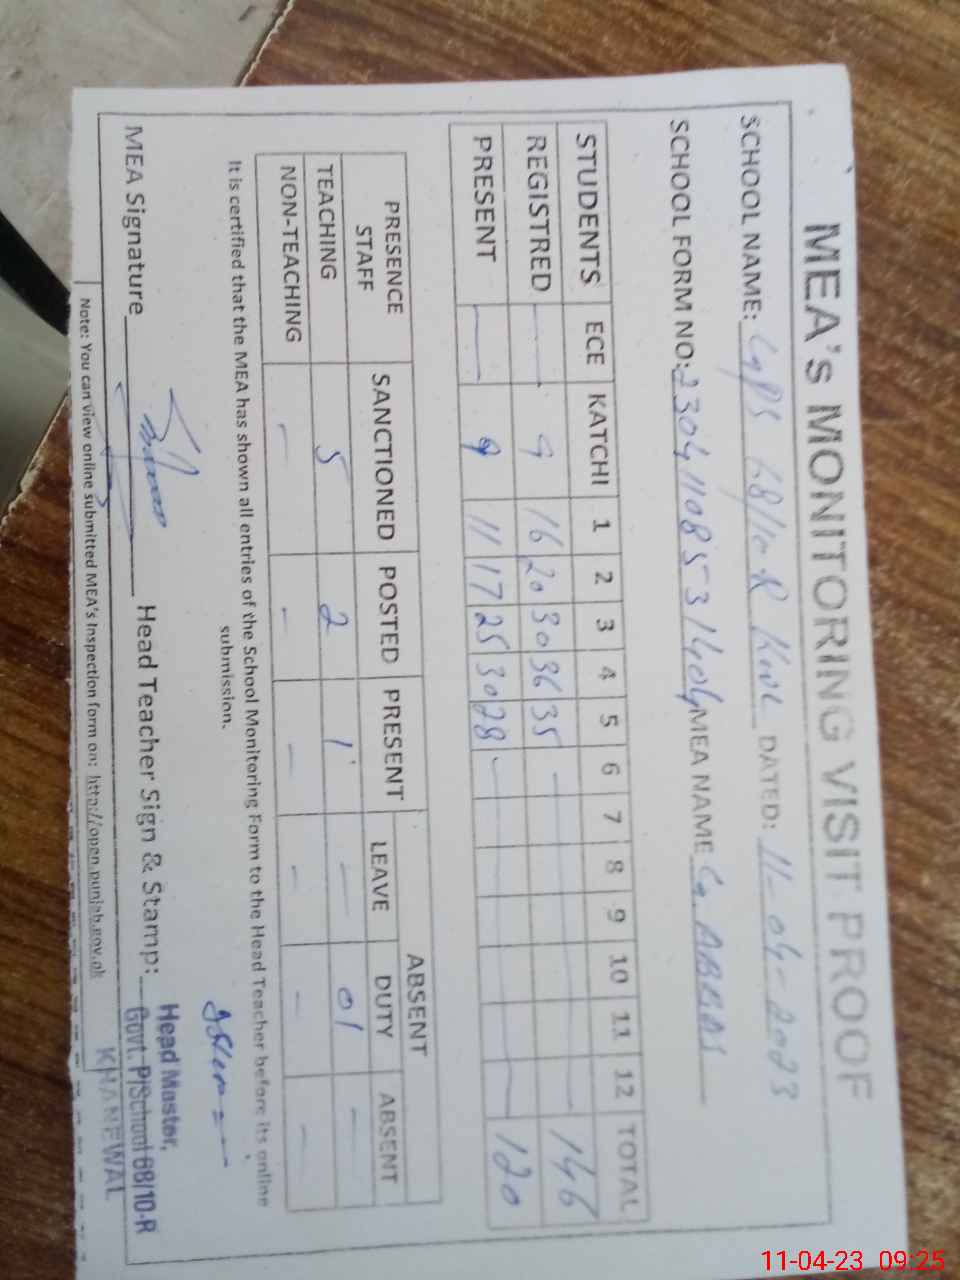 MEA'S MONITORING VISIT PROOF
SCHOOL NAME: GPS 68/10-R Kwl DATED: 11-04-2023
SCHOOL FORM NO: 23041108531404 MEA NAME G. ABBAS
STUDENTS ECE KATCHI 1 2 3 4 5 6 7 8 9 10 11 12 TOTAL
REGISTRED — 9 16 20 30 36 35 — 146
PRESENT — 9 11 17 25 30 28 — 120
PRESENCE STAFF SANCTIONED POSTED PRESENT ABSENT
LEAVE DUTY ABSENT
TEACHING 5 2 1 — 01 —
NON-TEACHING — — — — — —
It is certified that the MEA has shown all entries of the School Monitoring Form to the Head Teacher before its online
submission.
MEA Signature Head Teacher Sign & Stamp:
Head Master,
Govt. P/School 68/10-R
KHANEWAL
Note: You can view online submitted MEA's Inspection form on: http://open.punjab.gov.pk
11-04-23 09:25